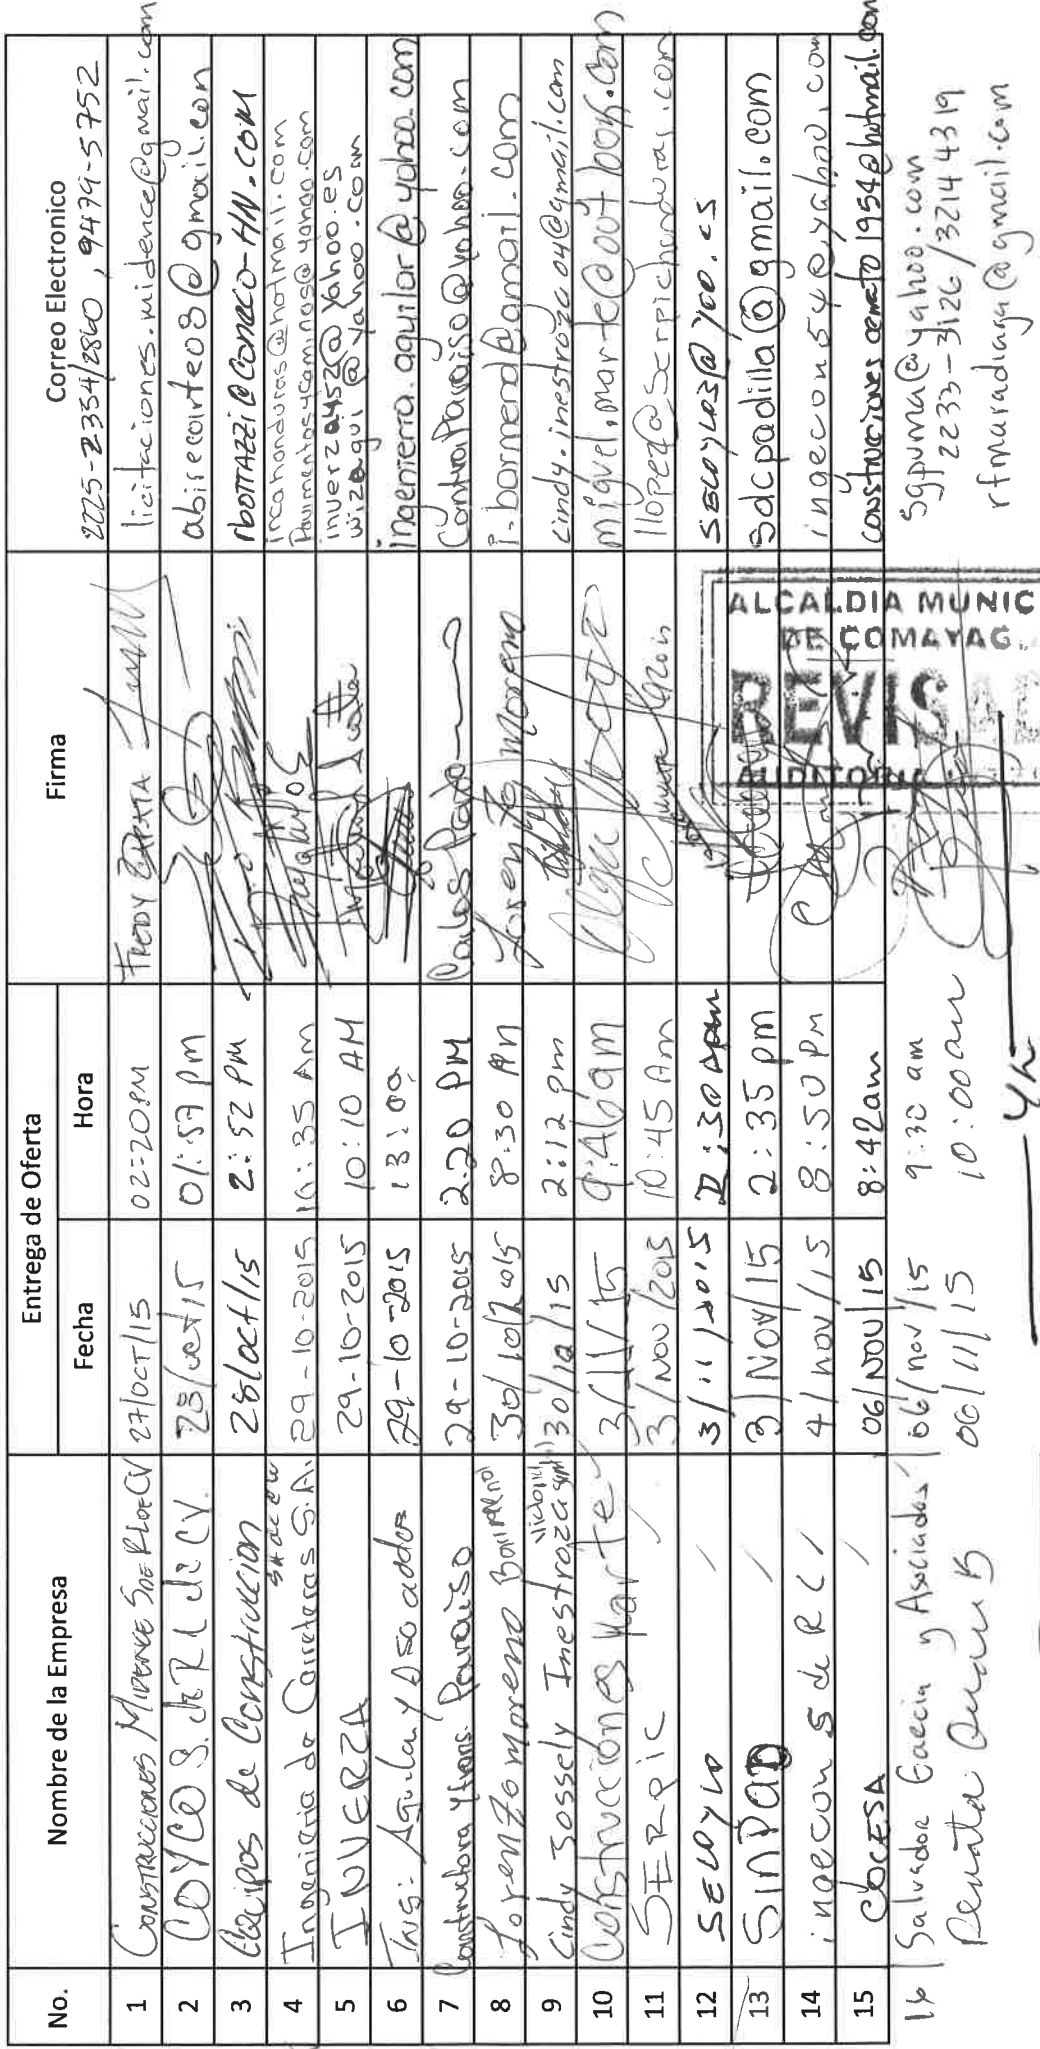 No. Nombre de la Empresa Entrega de Oferta Firma Correo Electronico
Fecha Hora 2225-2334/2860, 9479-5752
1 Construcciones Midence S de RL de CV 27/OCT/15 02:20PM Fredy Zapata licitaciones.midence@gmail.com
2 COYCO S. de R L de CV. 28/oct/15 01:57 pm abisecarte03@gmail.com
3 Equipos de Construccion 28/oct/15 2:52 PM rbottazzi@coneco-HN.com
4 Ingenieria de Carreteras S.A. 29-10-2015 10:35 Am incahonduras@hotmail.com
Pavimentosycaminos@yahoo.com
5 INVERZA 29-10-2015 10:10 AM inverza452@yahoo.es
wizagui@yahoo.com
6 Ing: Aguilar y Asociados 29-10-2015 13:00 ingenieria.aguilar@yahoo.com
7 Constructora y trans. Paraiso 29-10-2015 2:20 PM Carlos
8 Lorenzo Moreno 30/10/2015 8:30 Am Lorenzo Moreno i-bormend@gmail.com
9 Cindy Jossely Inestroza 30/10/15 2:12 pm cindy.inestroza04@gmail.com
10 Construcciones Marte 3/11/15 9:46am miguel.marte@outlook.com
11 SERPIC 3/Nov/2015 10:45 Am llopez@serpichonduras.com
12 SELOYLO 3/11/2015
13 SINPAD 3/Nov/15 2:35 pm sdcpadilla@gmail.com
14 ingecon S de R L 4/nov/15 8:50 PM ingecon54@yahoo.com
15 COCESA 06/NOV/15 8:42am
16 Salvador Garcia y Asociados 06/nov/15 9:30 am sgpuma@yahoo.com
06/11/15 10:00 am 2233-3126/32144319
rfmaradiaga@gmail.com
ALCALDIA MUNIC
DE COMAYAG
REVIS
AUDITORIA